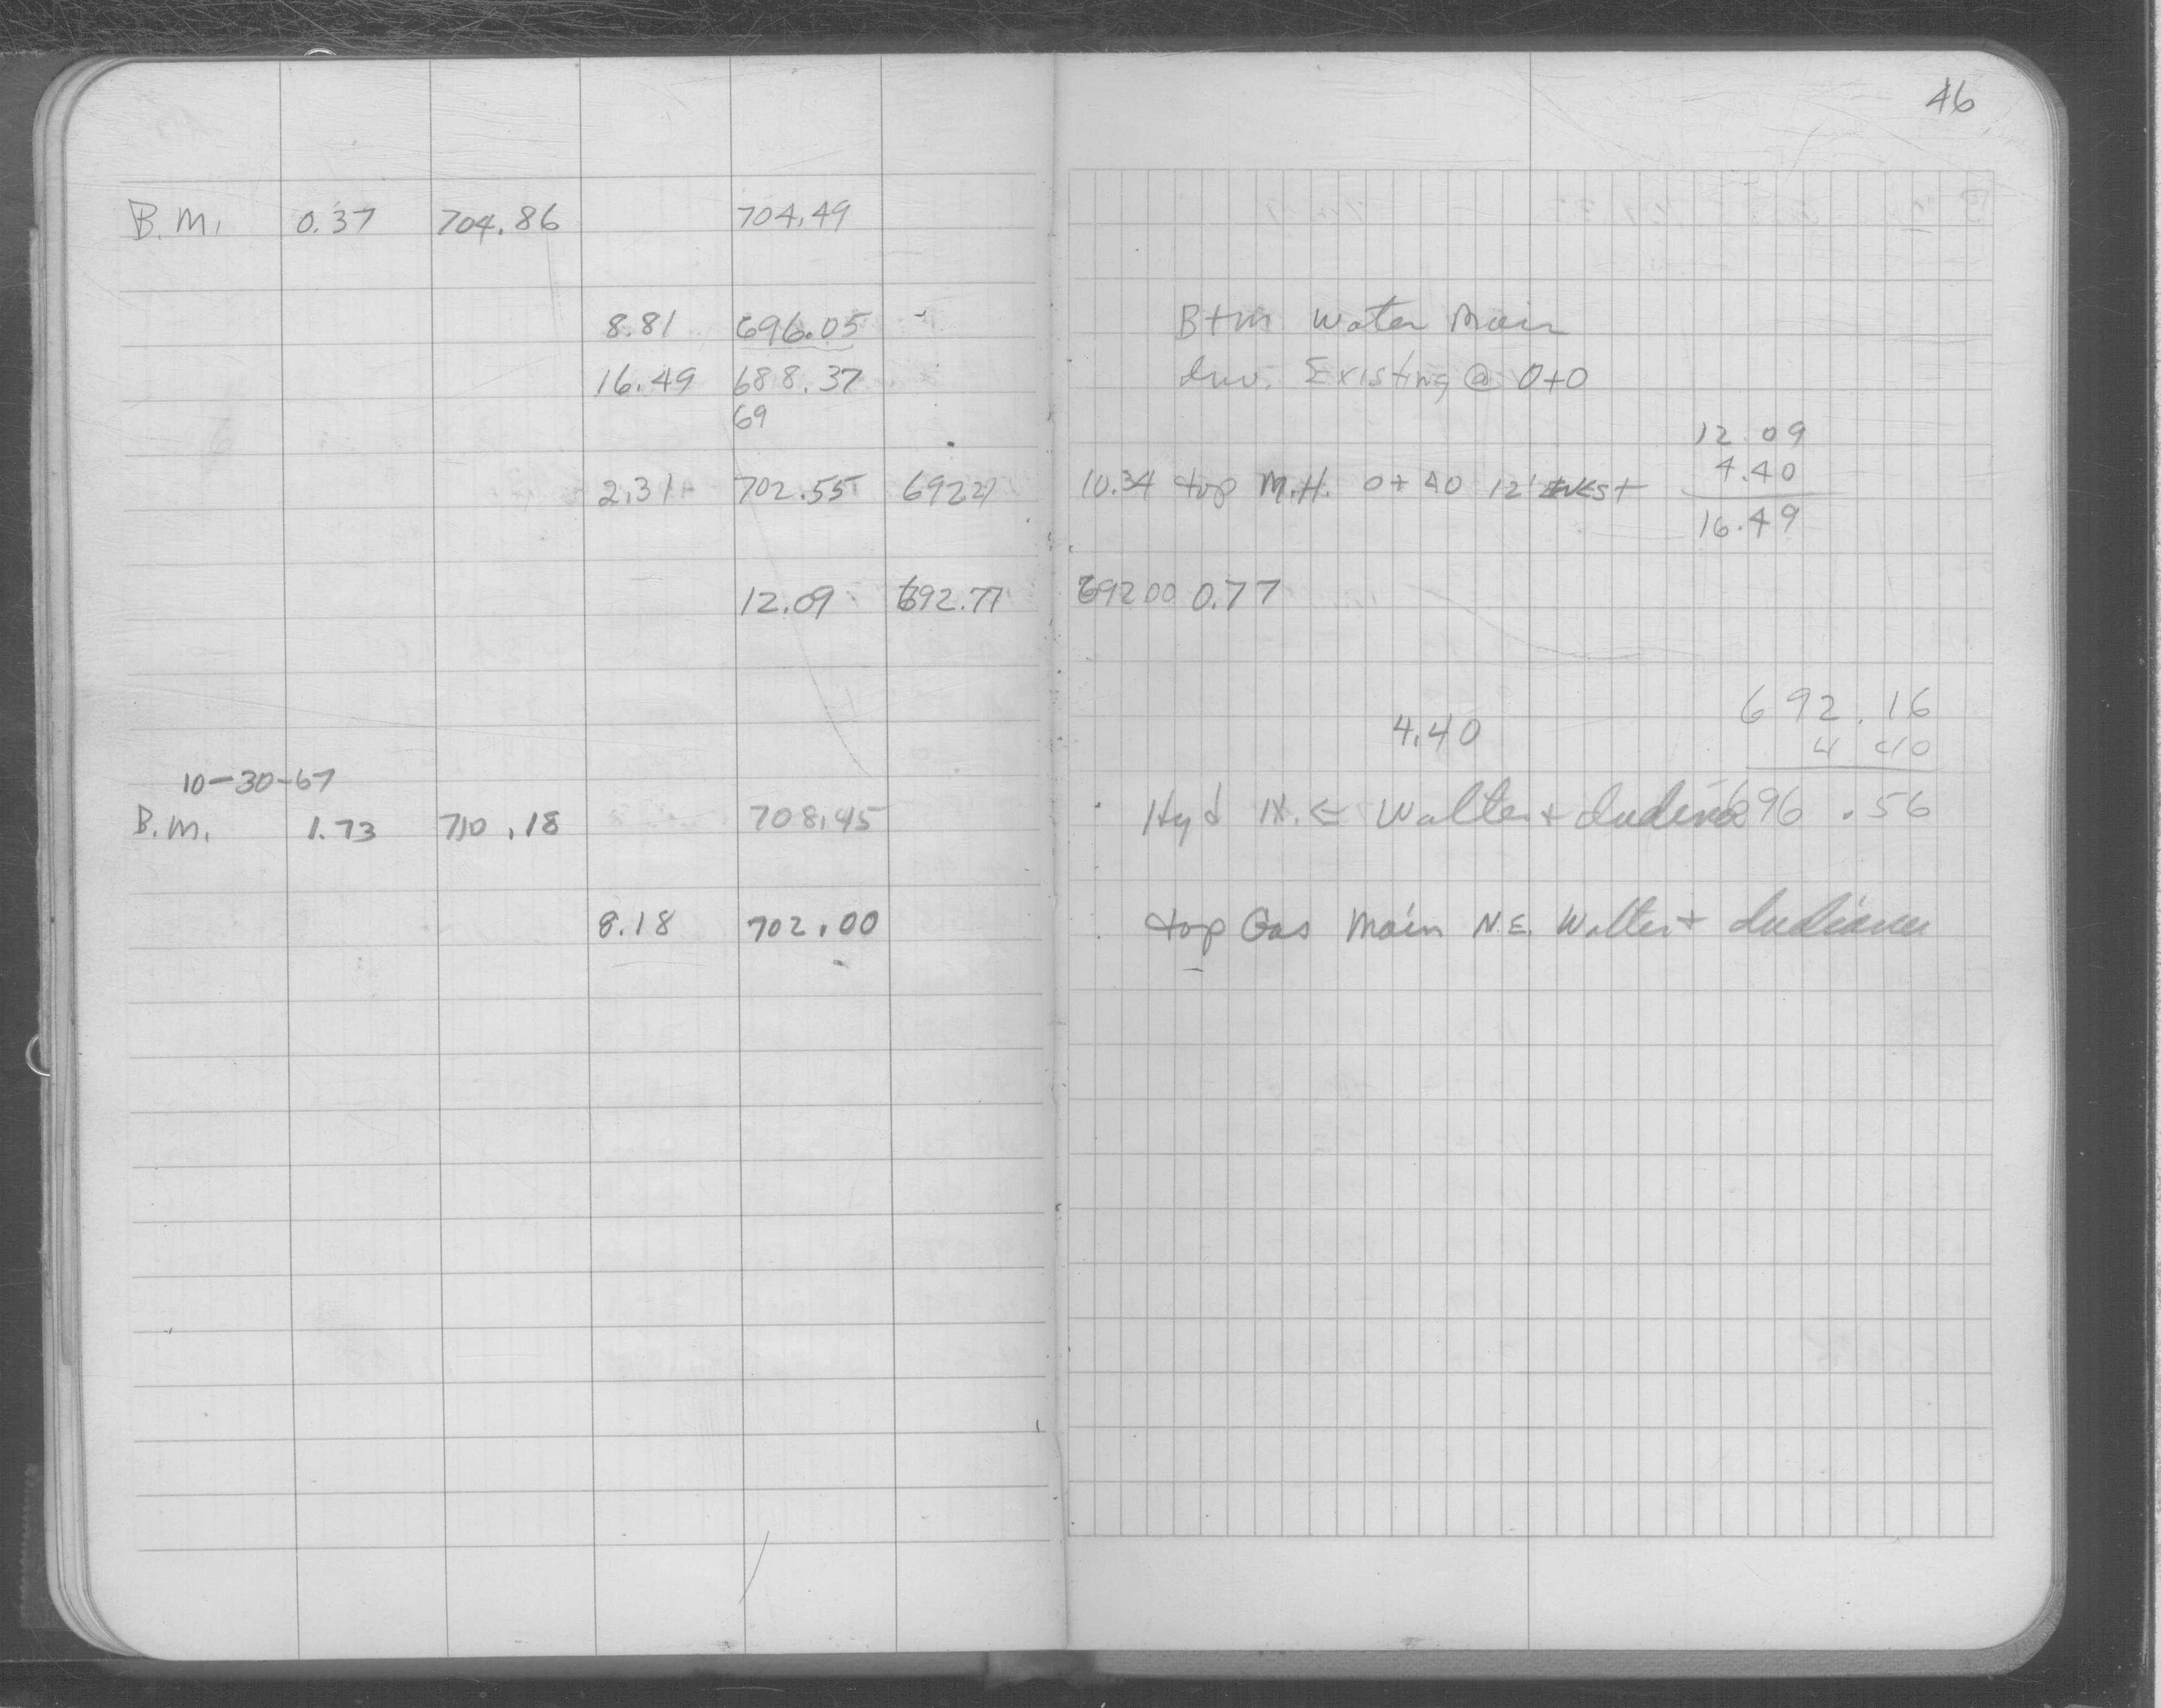 46
B.M. 0.37 704.86 704.49
8.81 696.05 Btm Water Main
16.49 688.37 Inv. Existing @ 0+0
69
12.09
4.40
2.31 702.55 10.34 top M.H. 0+40 12' West
16.49
12.09 692.77 69200 0.77
692.16
4.40 4 40
10-30-67
B.M. 1.73 710.18 708.45 Hyd N.E Walter + Indiana 696.56
8.18 702.00 top Gas Main N.E. Walter + Indiana